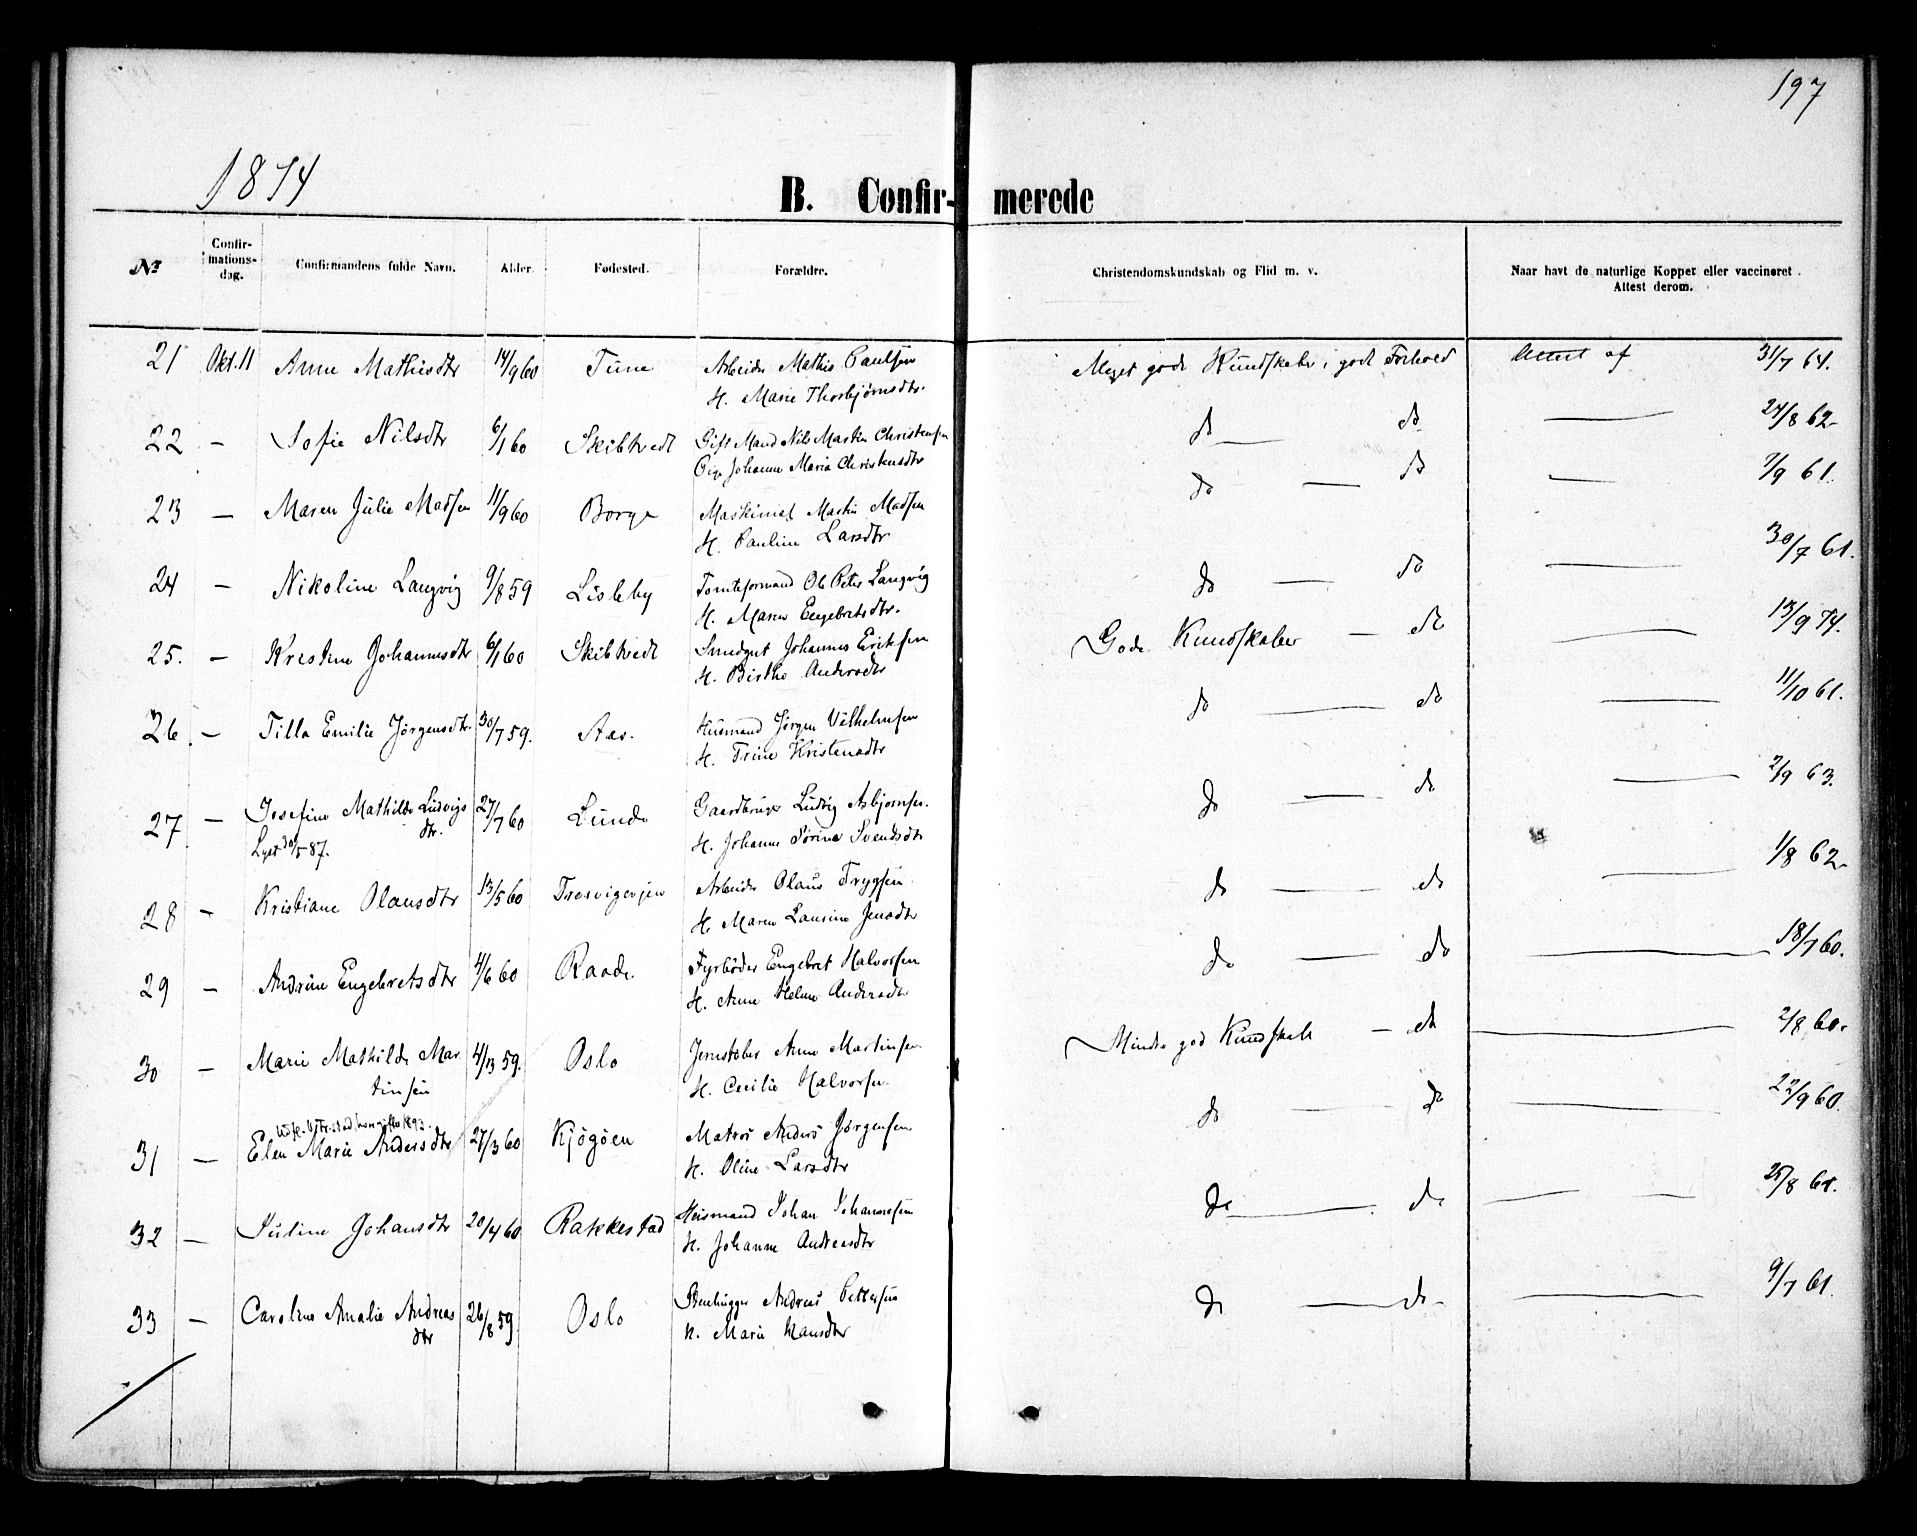 197
1874
B. Confir- merede
Nr Confir-mations-dag. Confirmandens fulde Navn. Alder. Fødested. Forældre. Christendomskundskab og Flid m. v. Naar havt de naturlige Kopper eller vaccineret. Attest derom.
21 Okt. 11 Anne Mathisdtr 14/9 60 Tune Arbeider Mathis Paulsen Meget gode Kundskaber, godt Forhold Attest af 31/7 61.
H. Marie Thorbjørnsdtr.
22 — Sofie Nilsdtr 6/1 60 Skibtvedt Gift Mand Nils Martin Christensen do — do — 24/8 62
Pige Johanne Maria Christensdtr
23 — Maren Julie Madsen 11/9 60 Borge Maskinist Martin Madsen do — do — 7/9 61.
H. Pauline Larsdtr
24 — Nikoline Langvig 9/8 59 Lisleby Tomteformand Ole Peter Langvig do — do — 30/7 61.
H. Maren Engebretsdtr.
25. — Kristine Johannesdtr 6/1 60 Skibtvedt Smedgut Johannes Eriksen Gode Kundskaber — do — 13/9 74.
H. Birthe Andersdtr
26. — Tilla Emilie Jørgensdtr. 30/7 59. Aas. Husmand Jørgen Vilhelmsen do — do — 11/10 61.
H. Trine Kristensdtr
27 — Josefine Mathilde Ludvigs 27/7 60 Lunde Gaardbruger Ludvig Asbjørnsen. do — do — 2/9 63.
dtr.
Lyst 30/5 87. H. Johanne Sørine Svendsdtr
28 — Kristiane Olausdtr 13/5 60 Trosvigevjen Arbeider Olaus Trygsen do — do — 1/8 62
H. Maren Laurine Jensdtr
29 — Andrine Engebretsdtr 4/6 60 Raade. Fyrbøder Engebret Halvorsen do — do — 18/7 60.
H. Anne Helene Andersdtr
30 — Marie Mathilde Mar 4/13 59. Oslo Jernstøber Anne Martinsen Mindre god Kundskab — do — 2/8 60.
tinsen H. Cecilie Halvorsen.
31 — Elen Marie Andersdtr 27/3 60 Kjøgøen Matros Anders Jørgensen do — do — 22/9 60.
H. Oline Larsdtr
32 — Juline Johansdtr 20/4 60 Rakkestad Husmand Johan Johannesen do — do — — 25/8 61.
H. Johanne Andreasdtr
33 — Caroline Amalie Andreas 26/8 59 Oslo Stenhugger Andreas Pettersen do — do — 9/7 61.
dtr H. Marie Hansdtr